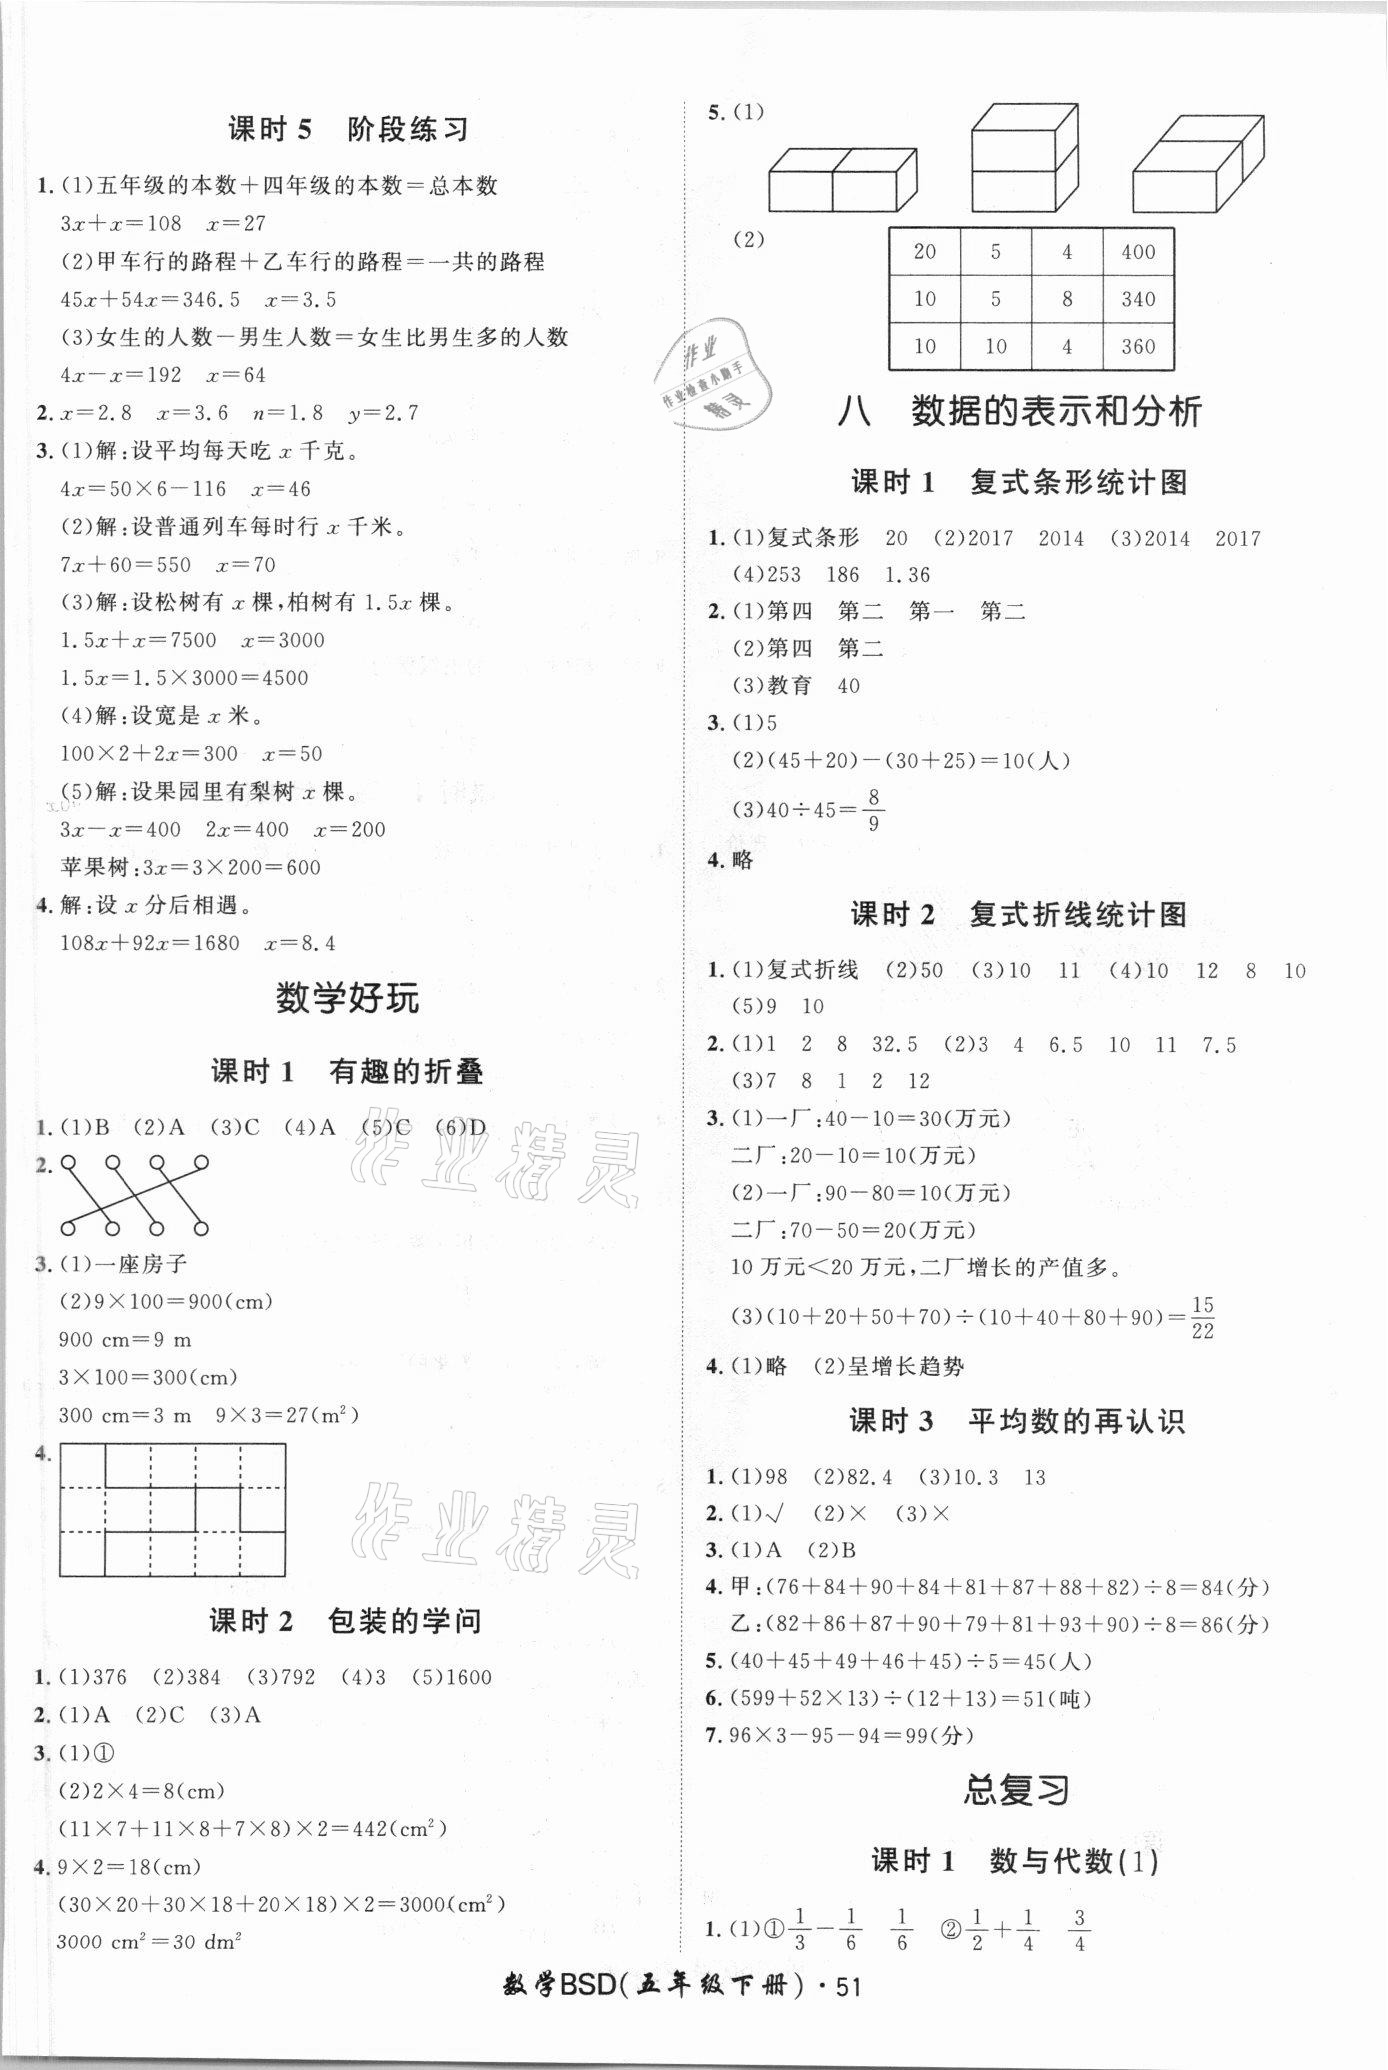 课时 5　阶段练习
1. (1)五年级的本数+四年级的本数=总本数
3x+x=108　x=27
(2)甲车行的路程+乙车行的路程=一共的路程
45x+54x=346.5　x=3.5
(3)女生的人数-男生人数=女生比男生多的人数
4x-x=192　x=64
2. x=2.8　x=3.6　n=1.8　y=2.7
3. (1)解:设平均每天吃 x 千克。
4x=50×6-116　x=46
(2)解:设普通列车每时行 x 千米。
7x+60=550　x=70
(3)解:设松树有 x 棵,柏树有 1.5x 棵。
1.5x+x=7500　x=3000
1.5x=1.5×3000=4500
(4)解:设宽是 x 米。
100×2+2x=300　x=50
(5)解:设果园里有梨树 x 棵。
3x-x=400　2x=400　x=200
苹果树:3x=3×200=600
4. 解:设 x 分后相遇。
108x+92x=1680　x=8.4
数学好玩
课时 1　有趣的折叠
1. (1)B　(2)A　(3)C　(4)A　(5)C　(6)D
2.
3. (1)一座房子
(2)9×100=900(cm)
900 cm=9 m
3×100=300(cm)
300 cm=3 m　9×3=27(m²)
4.
课时 2　包装的学问
1. (1)376　(2)384　(3)792　(4)3　(5)1600
2. (1)A　(2)C　(3)A
3. (1)①
(2)2×4=8(cm)
(11×7+11×8+7×8)×2=442(cm²)
4. 9×2=18(cm)
(30×20+30×18+20×18)×2=3000(cm²)
3000 cm²=30 dm²
5. (1)
(2)
20　5　4　400
10　5　8　340
10　10　4　360
作业
作业检查小助手
精灵
八　数据的表示和分析
课时 1　复式条形统计图
1. (1)复式条形　20　(2)2017　2014　(3)2014　2017
(4)253　186　1.36
2. (1)第四　第二　第一　第二
(2)第四　第二
(3)教育　40
3. (1)5
(2)(45+20)-(30+25)=10(人)
(3)40÷45=8/9
4. 略
课时 2　复式折线统计图
1. (1)复式折线　(2)50　(3)10　11　(4)10　12　8　10
(5)9　10
2. (1)1　2　8　32.5　(2)3　4　6.5　10　11　7.5
(3)7　8　1　2　12
3. (1)一厂:40-10=30(万元)
二厂:20-10=10(万元)
(2)一厂:90-80=10(万元)
二厂:70-50=20(万元)
10 万元<20 万元,二厂增长的产值多。
(3)(10+20+50+70)÷(10+40+80+90)=15/22
4. (1)略　(2)呈增长趋势
课时 3　平均数的再认识
1. (1)98　(2)82.4　(3)10.3　13
2. (1)√　(2)×　(3)×
3. (1)A　(2)B
4. 甲:(76+84+90+84+81+87+88+82)÷8=84(分)
乙:(82+86+87+90+79+81+93+90)÷8=86(分)
5. (40+45+49+46+45)÷5=45(人)
6. (599+52×13)÷(12+13)=51(吨)
7. 96×3-95-94=99(分)
总复习
课时 1　数与代数(1)
1. (1)①1/3-1/6　1/6　②1/2+1/4　3/4
作业精灵
作业精灵
数学BSD(五年级下册)·51